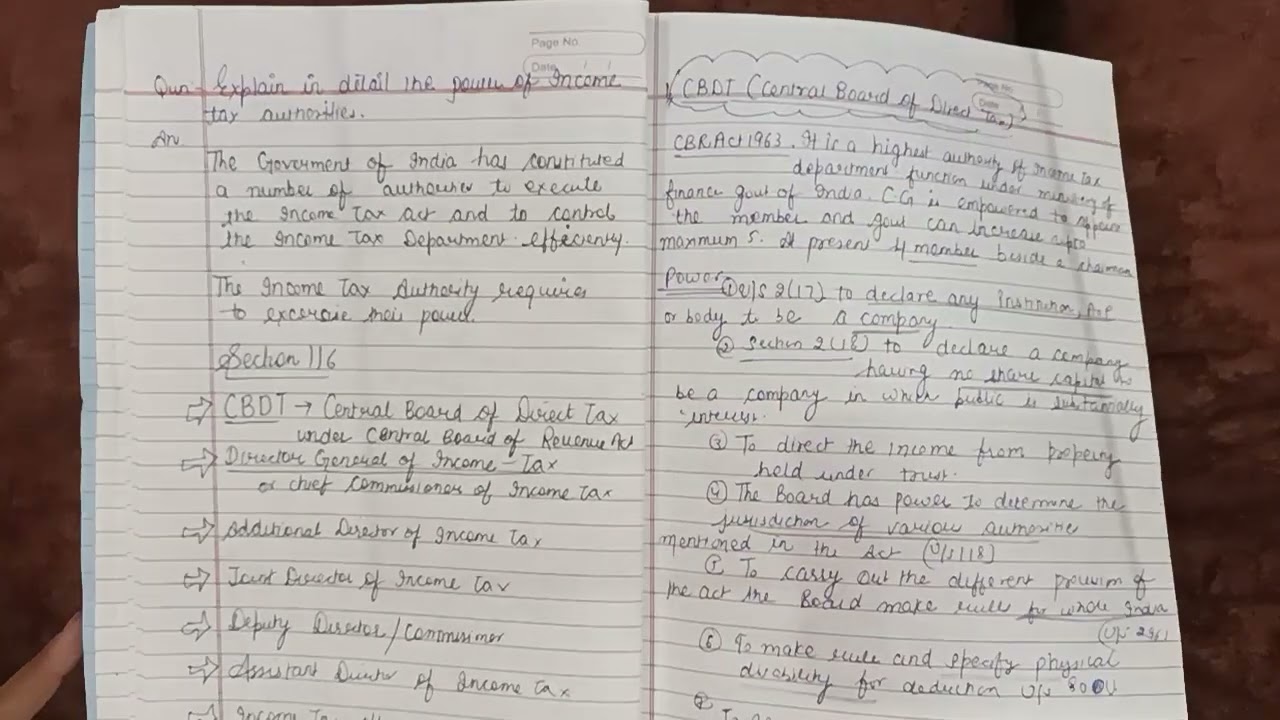 Page No.
Date
Qun Explain in ditail the power of Income
tax authorities.
An
The Goverment of India has constituted
a number of authorities to execute
the Income Tax act and to control
the Income Tax Department efficiently.
The Income Tax Authority requires
to excersie their power.
Section 116
⇒ CBDT → Central Board of Direct Tax
under Central Board of Revenue Act
⇒ Director General of Income-Tax
or chief Commissioner of Income Tax
⇒ Additional Director of Income Tax
⇒ Joint Director of Income Tax
⇒ Deputy Director/Commisioner
⇒ Assistant Director of Income Tax
Income Tax
Page No.
Date
CBDT (Central Board of Direct Tax)
CBR Act 1963. It is a highest authority of Income Tax
department function under ministry of
finance govt of India. C.G is empowered to
the member and govt can increase upto
maximum 5. At present 4 member beside a chairman
Power ① U/S 2(17) to declare any institution,
or body to be a company.
② Section 2(18) to declare a company
having no share capital to
be a company in which public is substantially
interest.
③ To direct the income from property
held under trust.
④ The Board has power to determine the
jurisdiction of various authorities
mentioned in the Act (U/s 118)
⑤ To carry out the different provision of
the act the Board make rule for whole India
⑥ To make rule and specify physical
disability for deduction U/s 80U
To